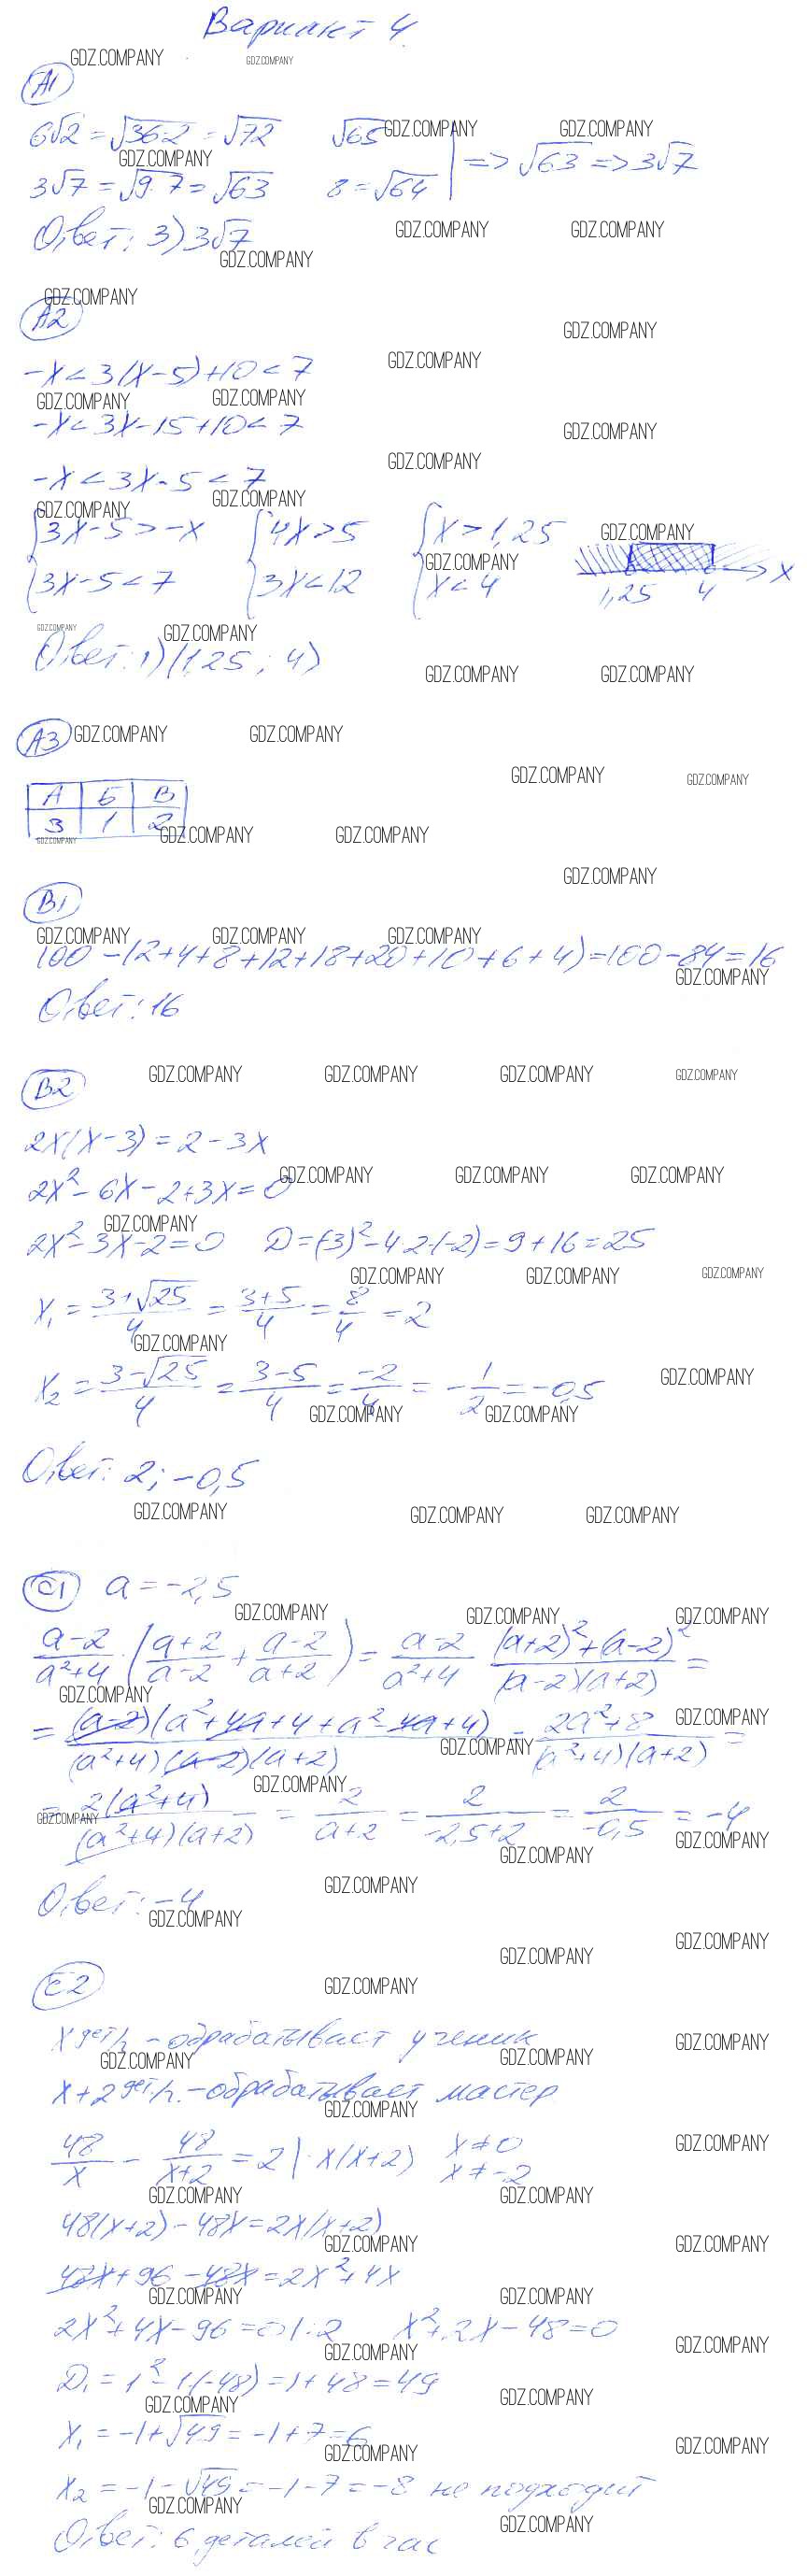 Вариант 4.
А1
6√2 = √36·2 = √72   √65
3√7 = √9·7 = √63   8 = √64 | => √63 => 3√7
Ответ: 3) 3√7
А2
-x < 3(x-5)+10 < 7
-x < 3x-15+10 < 7
-x < 3x-5 < 7
{3x-5 > -x   {4x > 5   {x > 1,25
{3x-5 < 7   {3x < 12   {x < 4   1,25   4   x
Ответ: 1) (1,25 ; 4)
А3
А Б В
3 1 2
В1
100 - (2+4+8+12+18+20+10+6+4) = 100-84 = 16
Ответ: 16
В2
2x(x-3) = 2-3x
2x²-6x-2+3x = 0
2x²-3x-2 = 0   D = (-3)²-4·2·(-2) = 9+16 = 25
x₁ = (3+√25)/4 = (3+5)/4 = 8/4 = 2
x₂ = (3-√25)/4 = (3-5)/4 = -2/4 = -1/2 = -0,5
Ответ: 2; -0,5
С1 a = -2,5
(a-2)/(a²+4) · ((a+2)/(a-2) + (a-2)/(a+2)) = (a-2)/(a²+4) · ((a+2)²+(a-2)²)/((a-2)(a+2)) =
= (a-2)(a²+4a+4+a²-4a+4)/((a²+4)(a-2)(a+2)) = (2a²+8)/((a²+4)(a+2)) =
= 2(a²+4)/((a²+4)(a+2)) = 2/(a+2) = 2/(-2,5+2) = 2/(-0,5) = -4
Ответ: -4
С2
x дет/ч - обрабатывает ученик
x+2 дет/ч. - обрабатывает мастер
48/x - 48/(x+2) = 2 | · x(x+2)   x ≠ 0
x ≠ -2
48(x+2) - 48x = 2x(x+2)
48x+96-48x = 2x²+4x
2x²+4x-96 = 0 |:2   x²+2x-48 = 0
D₁ = 1²-1·(-48) = 1+48 = 49
x₁ = -1+√49 = -1+7 = 6
x₂ = -1-√49 = -1-7 = -8 не подходит
Ответ: 6 деталей в час
GDZ.COMPANY